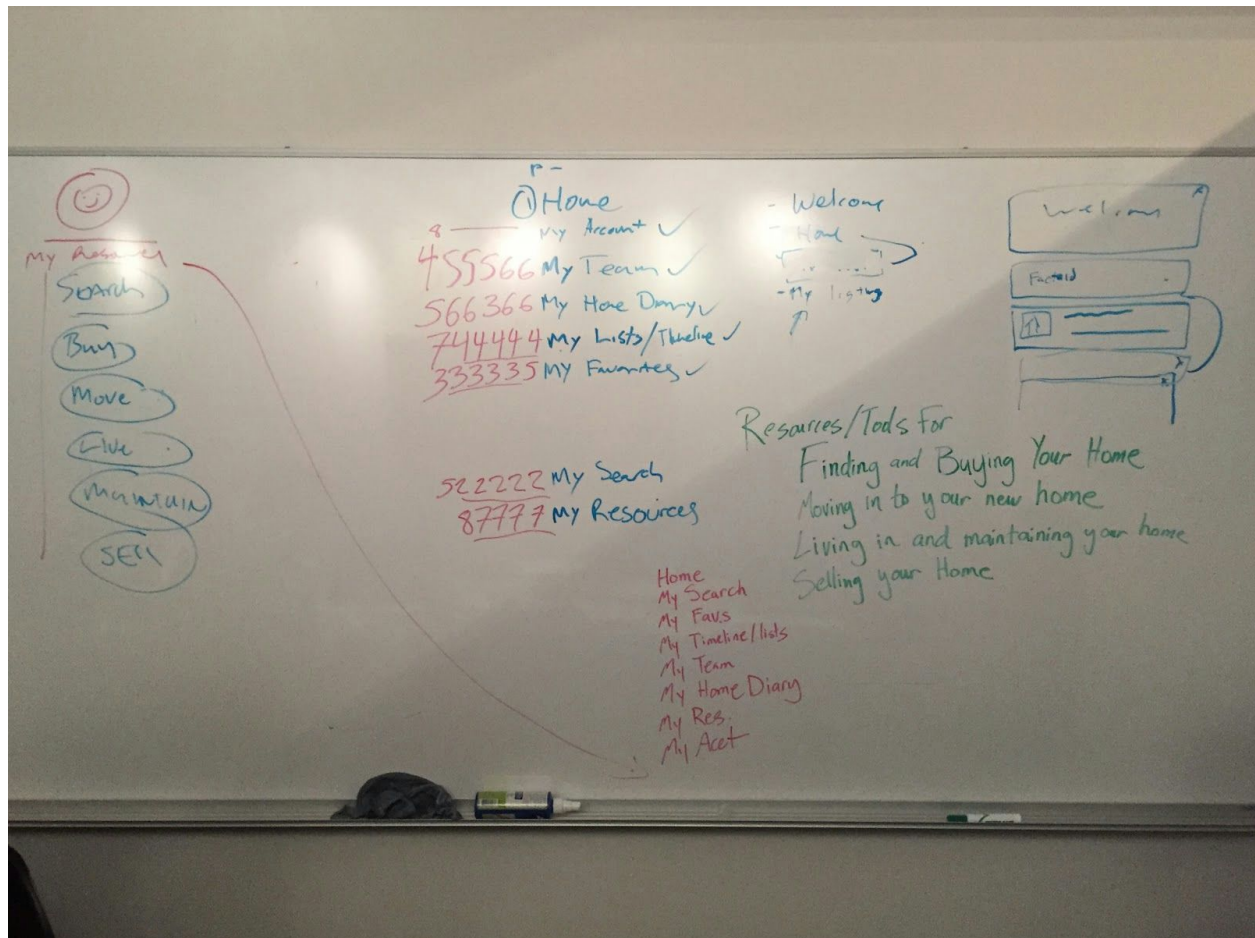 My
Search
Buy
Move
Live
Maintain
Sell
P -
① Home
8 My Account ✓
455566 My Team ✓
566366 My Home Diary ✓
744444 My Lists/Timeline ✓
333335 My Favorites ✓
522222 My Search
87777 My Resources
- Welcome
- Home
- My listing
Welcome
Factoid
Resources/Tools For
Finding and Buying Your Home
Moving in to your new home
Living in and maintaining your home
Selling your Home
Home
My Search
My Favs
My Timeline/lists
My Team
My Home Diary
My Res.
My Acct